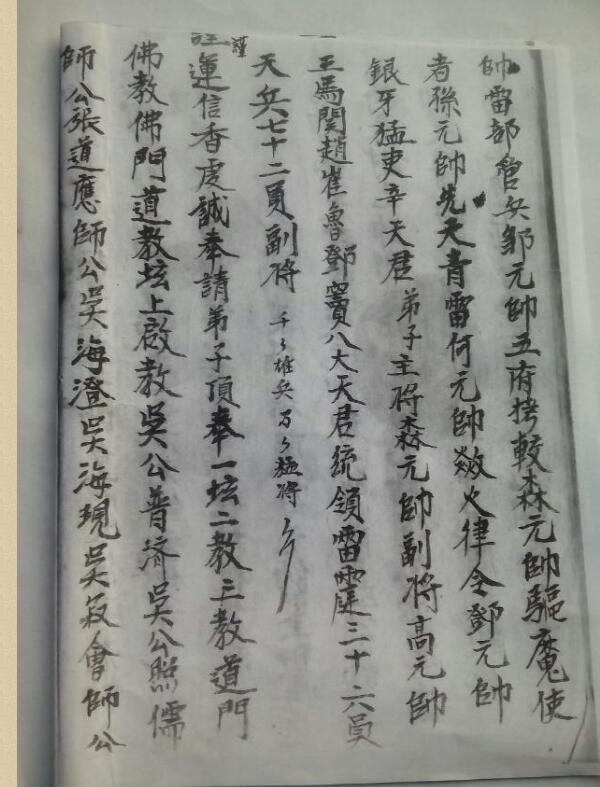 帥雷部管兵邹元帥五府挍較森元帥驅魔使
者孫元帥先天青雷何元帥欻火律令鄧元帥
銀牙猛吏辛天君弟子主將森元帥副將高元帥
王馬関趙崔魯鄧竇八大天君統領雷霆三十六員
天兵七十二員副将千々雄兵万々猛将
謹運信香虔誠奉請弟子頂奉一坛二教三教道門
佛教佛門道教坛上啟教吳公普济吳公照儒
師公張道應師公吳海澄吳海現吳叔會師公